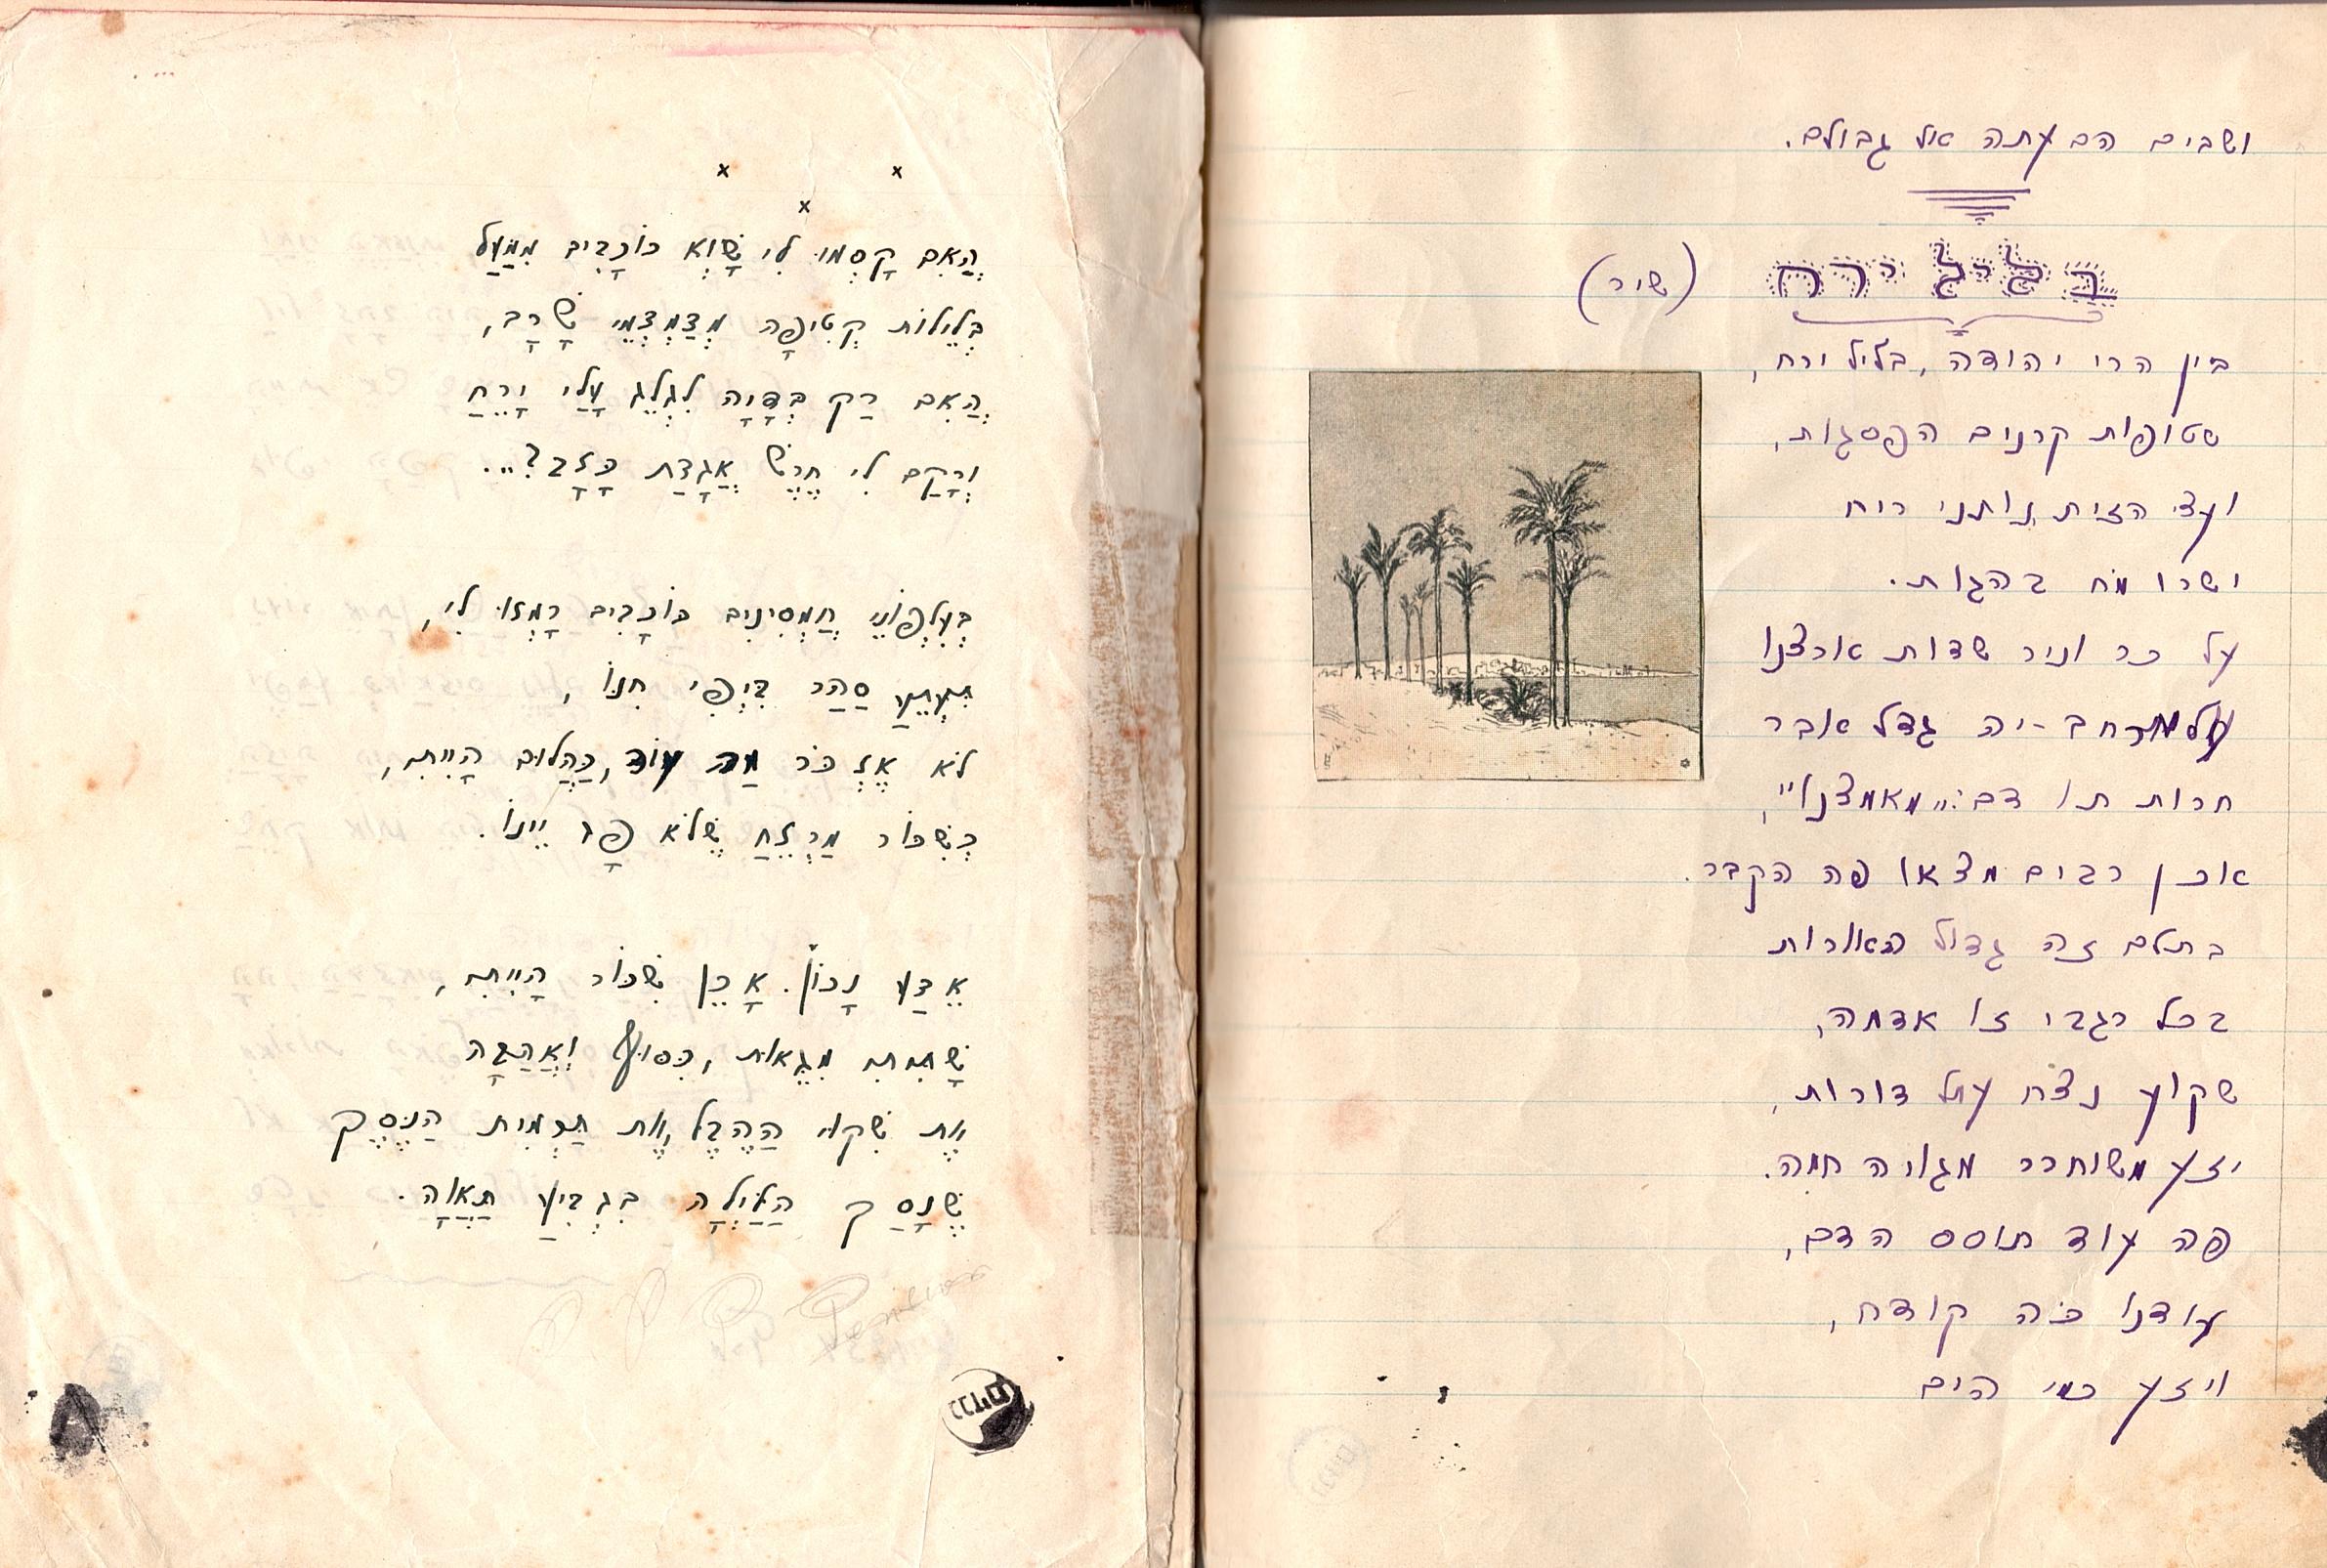 ושבים הם עתה אל גבולם.
בליל ירח (שיר)
בין הרי יהודה, בליל ירח,
שטופות קרנים הפסגות,
ועצי הזית נותני ריח
ושרו מח בהגות.
על כר וניר שדות ארצנו
גדל אבר
חרות תו דם: "מאמצנו",
אכן רבים מצאו פה הקבר.
בתלם זה גדול האורות
בכל רגבי זו אדמה,
שקוע נצח עמל דורות,
יזע משוחרר מגויה חמה.
פה עוד תוסס הדם,
עודנו פה קודח,
ויזע כמי הים
x x
x
הַאִם קָסְמוּ לִי שָׁוְא כּוֹכָבִים מִמַּעַל
בְּלֵילוֹת קְטִיפָה מְצַמְצְמֵי שָׁרָב,
הַאִם רַק בְּדָיָה לִגְלֵג עָלַי יָרֵחַ
וְרָקַם לִי חֶרֶשׁ אֲגָדַת כָּזָב?...
בְּעִלְפוֹנֵי חַמְסִינִים כּוֹכָבִים רָמְזוּ לִי,
תִּעְתֵּעַ סַהַר בִּיְפִי חִנּוֹ,
לֹא אֶזְכֹּר מַה עוֹד, כַּהֲלוּם הָיִיתִי,
כְּשִׁכּוֹר מַרְזֵחַ שֶׁלֹּא פָּג יֵינוֹ.
אֵדַע נָכוֹן. אָכֵן שִׁכּוֹר הָיִיתִי,
שָׁתִתִי מִגֵאוּת, כִּסּוּף וְאַהֲבָה
אֶת שִׁקּוּי הַהֶבֶל, אֶת תַּרְמִית הַנֶּסֶךְ
שֶׁנָּסַךְ הַלַּיְלָה בִּגְבִיעַ תַּאֲוָה.